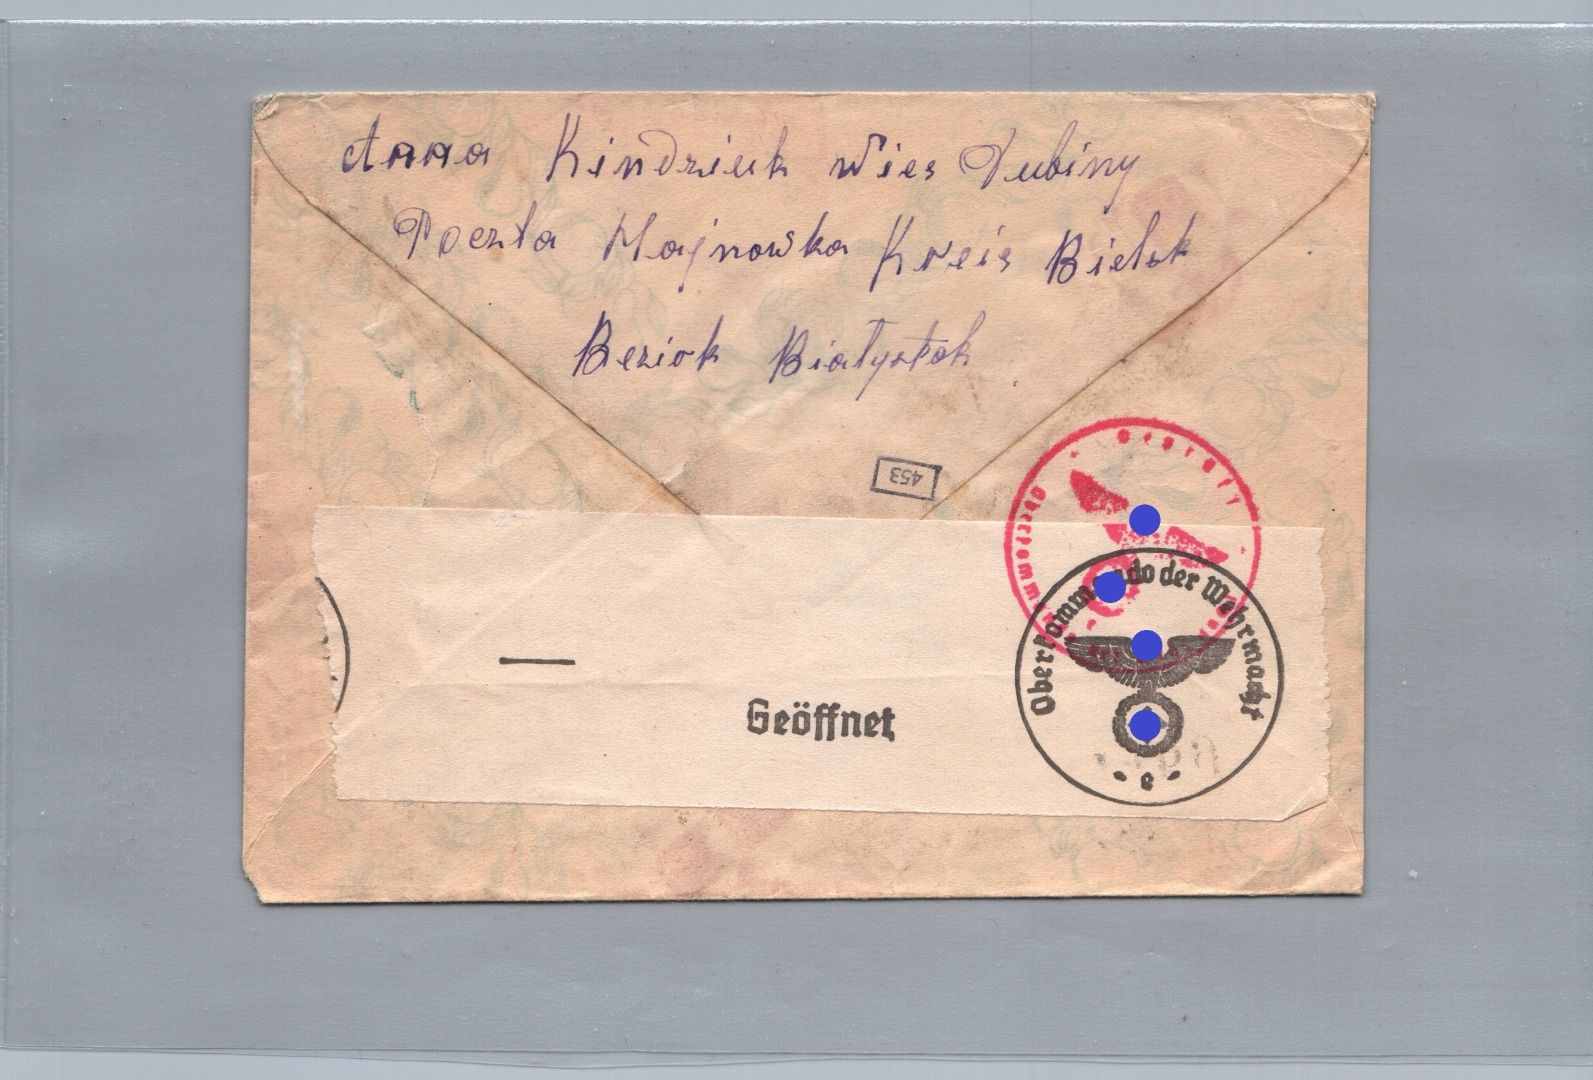 Anna Kindziuk Wies Dubiny
Poczta Hajnowska Kreis Bielsk
Bezirk Białystok
453
Geprüft
Oberkomm
Oberkommando der Wehrmacht
Geöffnet
- e -